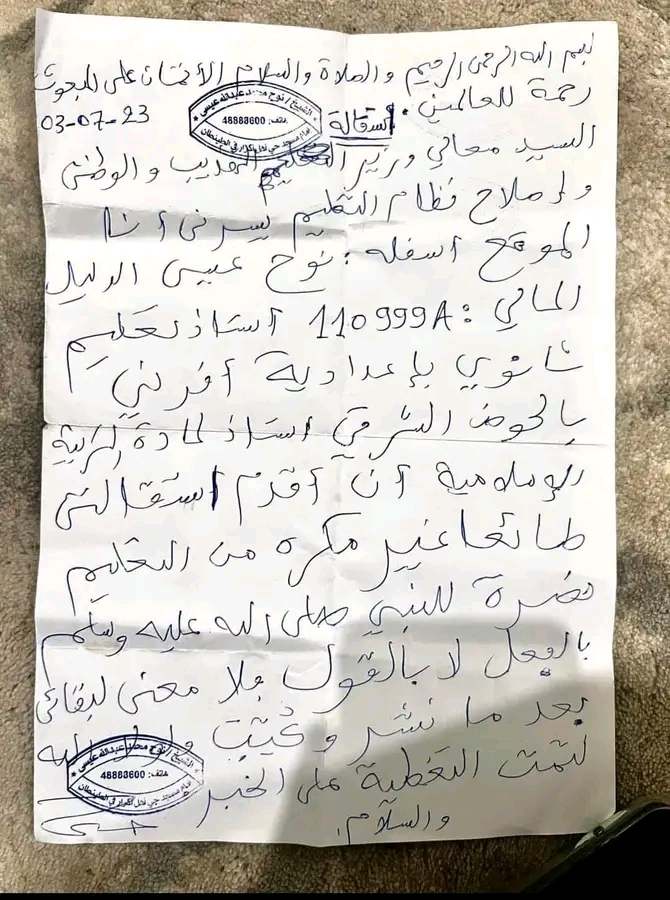 بسم الله الرحمن الرحيم والصلاة والسلام الأتمان على المبعوث
رحمة للعالمين.
استقالة
03-07-23
الشيخ / نوح محمد عبدالله عيسى
هاتف: 48888600
السيد معالي وزير التهذيب والوطني
وإصلاح نظام التعليم يسرني أنا
الموقع أسفله: نوح عيسى الدليل
المالي: 110999A أستاذ تعليم
ثانوي بإعدادية آفرني
بالحوض الشرقي استاذ لمادة التربية
الإسلامية أن أقدم استقالتي
طائعا غير مكره من التعليم
نصرة للنبي صلى الله عليه وسلم
بالفعل لا بالقول فلا معنى لبقائي
بعد ما نشر وكتب
لتمت التغطية على الخبر
والسلام.
الشيخ / نوح محمد عبدالله عيسى
هاتف: 48888600